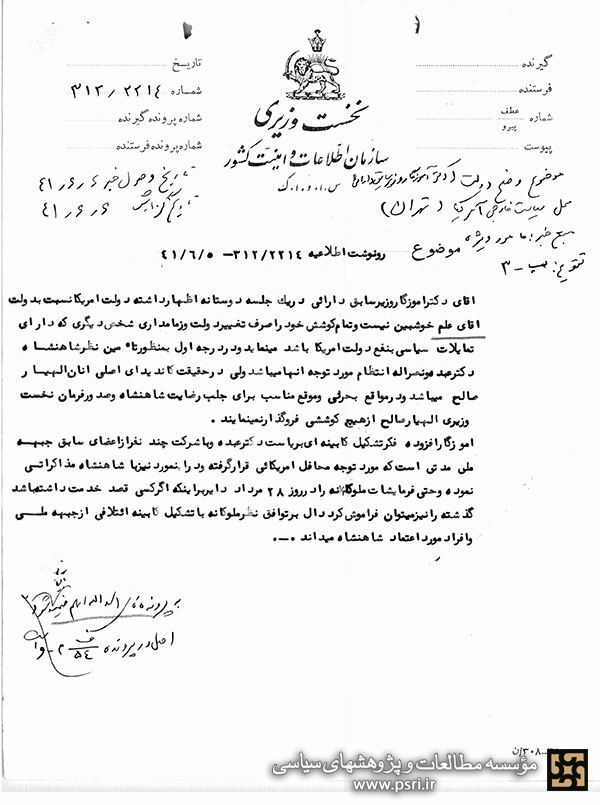 گیرنده
فرستنده
شماره عطف
پیرو
پیوست
نخست وزیری
سازمان اطلاعات و امنیت کشور
س . ا . و . ا . ک
تاریخ
شماره ۳۱۲/۲۲۱٤
شماره پرونده گیرنده
شماره پرونده فرستنده
موضوع وضع دولت (دکتر آموزگار وزیر سابق دارائی)
محل سیاست خارجی آمریکا (تهران)
منبع خبر: مامور ویژه
تقویم: ب - ۳
تاریخ وصول خبر ٤۱/٦/٤
تاریخ گزارش ٤۱/٦/٤
موضوع
رونوشت اطلاعیه ۳۱۲/۲۲۱٤ - ٤۱/٦/٥
اقای دکتراموزگاروزیرسابق دارائی دریك جلسه دوستانه اظهارداشته دولت امریکانسبت بدولت
اقای علم خوشبین نیست وتمام کوشش خود راصرف تغییردولت وزمامداری شخص دیگری که دارای
تمایلات سیاسی بنفع دولت امریکا باشد مینماید ودردرجه اول بمنظورتامین نظرشاهنشاه
دکترعبدهونصراله انتظام مورد توجه انهامیباشد ولی درحقیقت کاندیدای اصلی انان الهیار
صالح میباشد ودرمواقع بحرانی وموقع مناسب برای جلب رضایت شاهنشاه وصدورفرمان نخست
وزیری الهیارصالح ازهیچ کوششی فروگذارنمینمایند .
اموزگارافزوده فکرتشکیل کابینه ای بریاست دکترعبده وباشرکت چند نفرازاعضای سابق جبهه
ملی مدتی است که مورد توجه محافل امریکائی قرارگرفته ودراینمورد نیزبا شاهنشاه مذاکراتی
نموده وحتی فرمایشات ملوکانه رادرروز ۲۸ مرداد دایربراینکه اگرکسی قصد خدمت داشته باشد
گذشته رانیزمیتوان فراموش کرد دال برتوافق نظرملوکانه باتشکیل کابینه ائتلافی ازجبهه ملی
وافراد مورد اعتماد شاهنشاه میداند .
به پرونده اسداله علم ضمیمه شود
اصل در پرونده ف ٥٤
۳۰۸/ن
مؤسسه مطالعات و پژوهشهای سیاسی
www.psri.ir